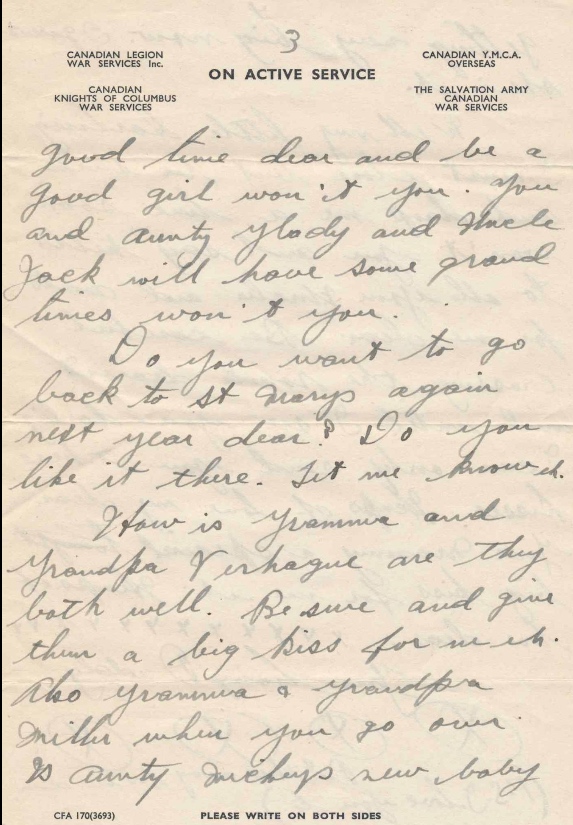 3
CANADIAN LEGION
WAR SERVICES Inc.
CANADIAN
KNIGHTS OF COLUMBUS
WAR SERVICES
ON ACTIVE SERVICE
CANADIAN Y.M.C.A.
OVERSEAS
THE SALVATION ARMY
CANADIAN
WAR SERVICES
good time dear and be a
good girl won't you. You
and Aunty Glady and Uncle
Jack will have some grand
times won't you.
Do you want to go
back to St Marys again
next year dear? Do you
like it there. Let me know eh.
How is Gramma and
Grandpa Verhague are they
both well. Be sure and give
them a big kiss for me eh.
Also Gramma & Grandpa
Miller when you go over.
Is Aunty Mickeys new baby
CFA 170(3693)
PLEASE WRITE ON BOTH SIDES